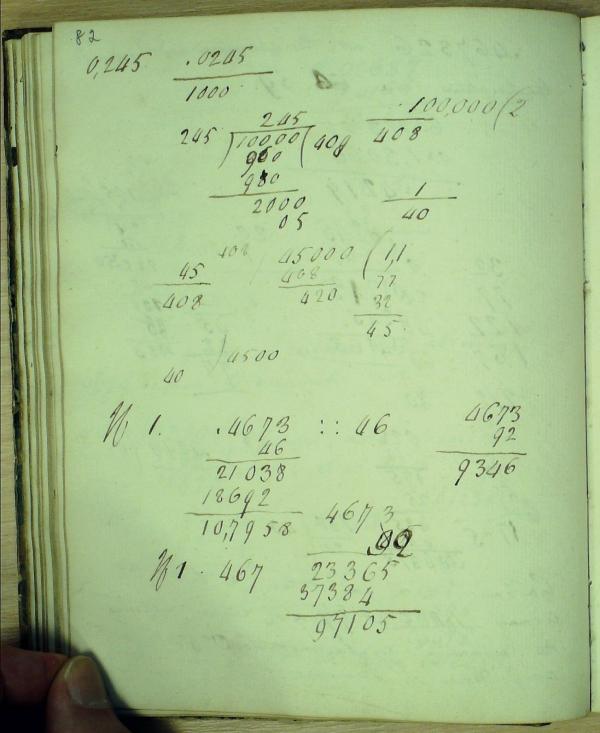 82
0,245 .0245
1000
245
245 ) 10000 ( 408
100,000 ( 2
408
900
980
2000
05
1
40
408 45000 ( 1,1
45
408
408
77
420
32
45
40 ) 4500
1. .4673 :: 46
46
21038
18692
10,7958
4673
92
9346
4673
1. 467
23365
37384
97105